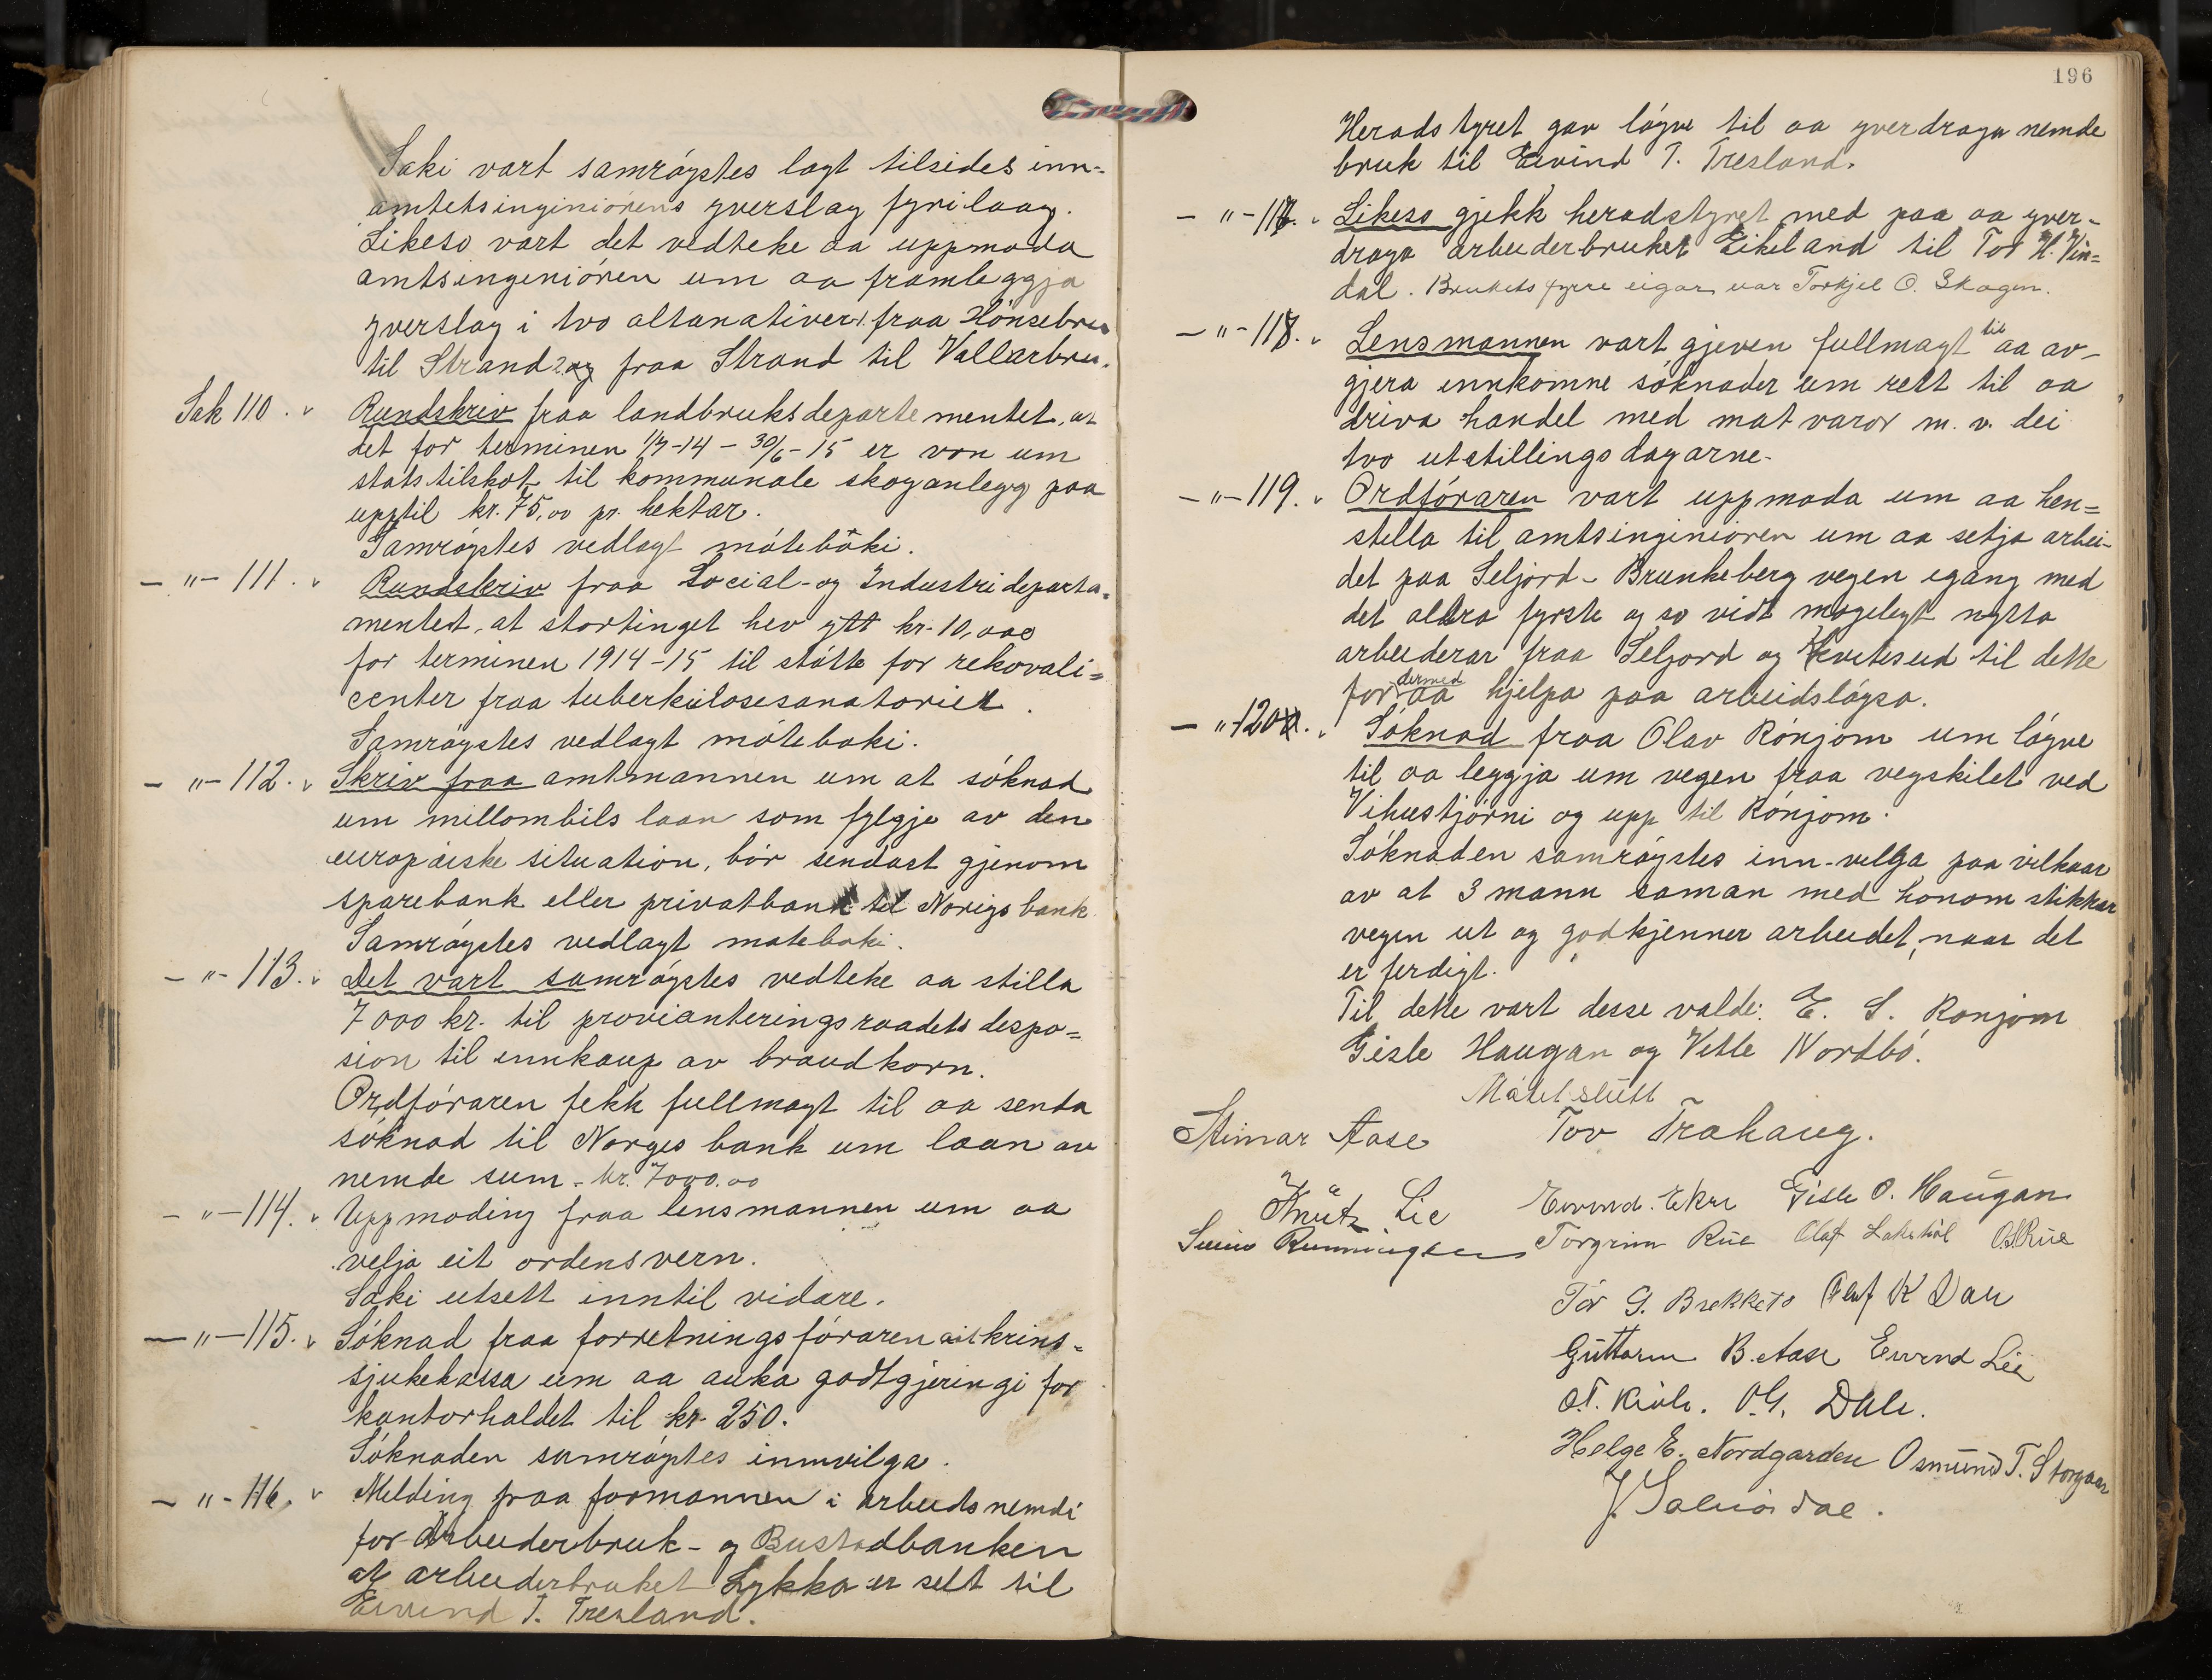 Saki vart samröystes lagt tilsides inn-
amtetsinginiörens yverslag fyrilaag.
Likeso vart det vedteke aa uppmoda
amtsingeniören um aa framleggja
yverslag i tvo altanativer 1. fraa Hönsebru
til Strand 2. og fraa Strand til Vallarbru.
Sak 110. Rundskriv fraa landbruksdepartementet, at
det for terminen 1/7-14 - 30/6-15 er von um
statstilskot til kommunale skoganlegg paa
upptil kr. 75,00 pr. hektar.
Samröystes vedlagt möteböki.
— " — 111. Rundskriv fraa Social- og Industrideparta-
mentet, at stortinget hev ytt kr. 10,000
for terminen 1914-15 til stötte for rekovali-
center fraa tuberkulosesanatoriet.
Samröystes vedlagt möteboki.
— " — 112. Skriv fraa amtmannen um at söknad
um millombils laan som fylgje av den
europæiske situation, bör sendast gjenom
sparebank eller privatbank til Norigs bank
Samröystes vedlagt moteboki.
— " — 113. Det vart samröystes vedteke aa stilla
7000 kr. til provianteringsraadets despo-
sion til innkaup av braudkorn.
Ordföraren fekk fullmagt til aa senda
söknad til Norges bank um laan av
nemde sum - kr. 7000.00
— " — 114. Uppmoding fraa lensmannen um aa
velja eit ordensvern.
Saki utsett inntil vidare.
— " — 115. Söknad fraa forretningsföraren i krins-
sjukekassa um aa auka godtgjeringi for
kontorhaldet til kr. 250.
Söknaden samröystes innvilga.
— " — 116. Melding fraa formannen i arbeidsnemdi
for Arbeiderbruk- og Bustadbanken
at arbeiderbruket Lykkja er selt til
Eivind T. Tresland.
196
Heradstyret gav löyve til aa yverdraga nemde
bruk til Eivind T. Tresland.
— " — 117. Likeso gjekk heradstyret med paa aa yver-
draga arbeiderbruket Eikeland til Tor H. Vin-
dal. Brukets fyrre eigar var Torkjel O. Skogen.
— " — 118. Lensmannen vart gjeven fullmagt til aa av-
gjera innkomne söknader um rett til aa
driva handel med matvaror m. v. dei
tvo utstillingsdagarne.
— " — 119. Ordföraren vart uppmoda um aa hen-
stella til amtsinginiören um aa setja arbei-
det paa Seljord - Brunkeberg vegen igang med
det aldra fyrste og so vidt mogelegt nytta
arbeiderar fraa Seljord og Kviteseid til dette
for dermed aa hjelpa paa arbeidslöysa.
— " — 120. Söknad fraa Olav Rönjom um löyve
til aa leggja um vegen fraa vegskilet ved
Vihustjörni og upp til Rönjom.
Söknaden samröystes inn-velga paa vilkaar
av at 3 mann saman med honom stikkar
vegen ut og godkjenner arbeidet, naar det
er ferdigt.
Til dette vart desse valde: E. S. Ronjom
Gisle Haugan og Vetle Nordbö.
Mötet slutt
Steinar Aase Tov Trahaug.
Knut Lie Eivind Ekre Gisle O. Haugan
Svein Runningen Torgrim Rue Olaf Lakshöl O.S. Rue
Tor G. Brekketo Olaf K Dan
Guttorm B. Aase Eivind Lie
O.T. Kivle. O.G. Dale.
Helge E. Nordgarden Osmund T. Storgaar
J. Salvördal.